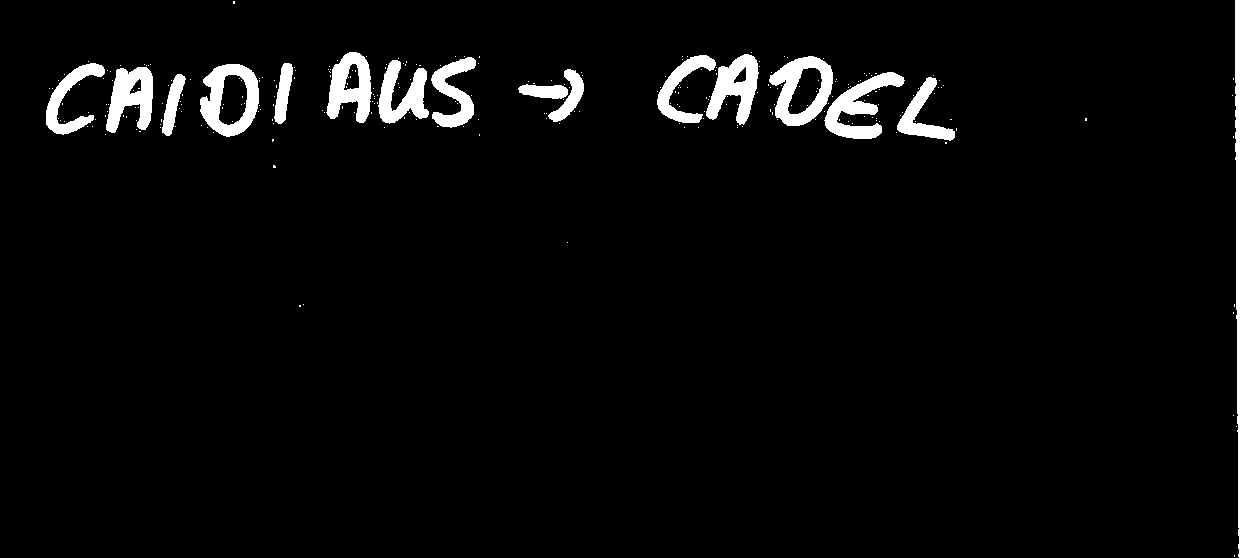 CAIDI AUS → CADEL